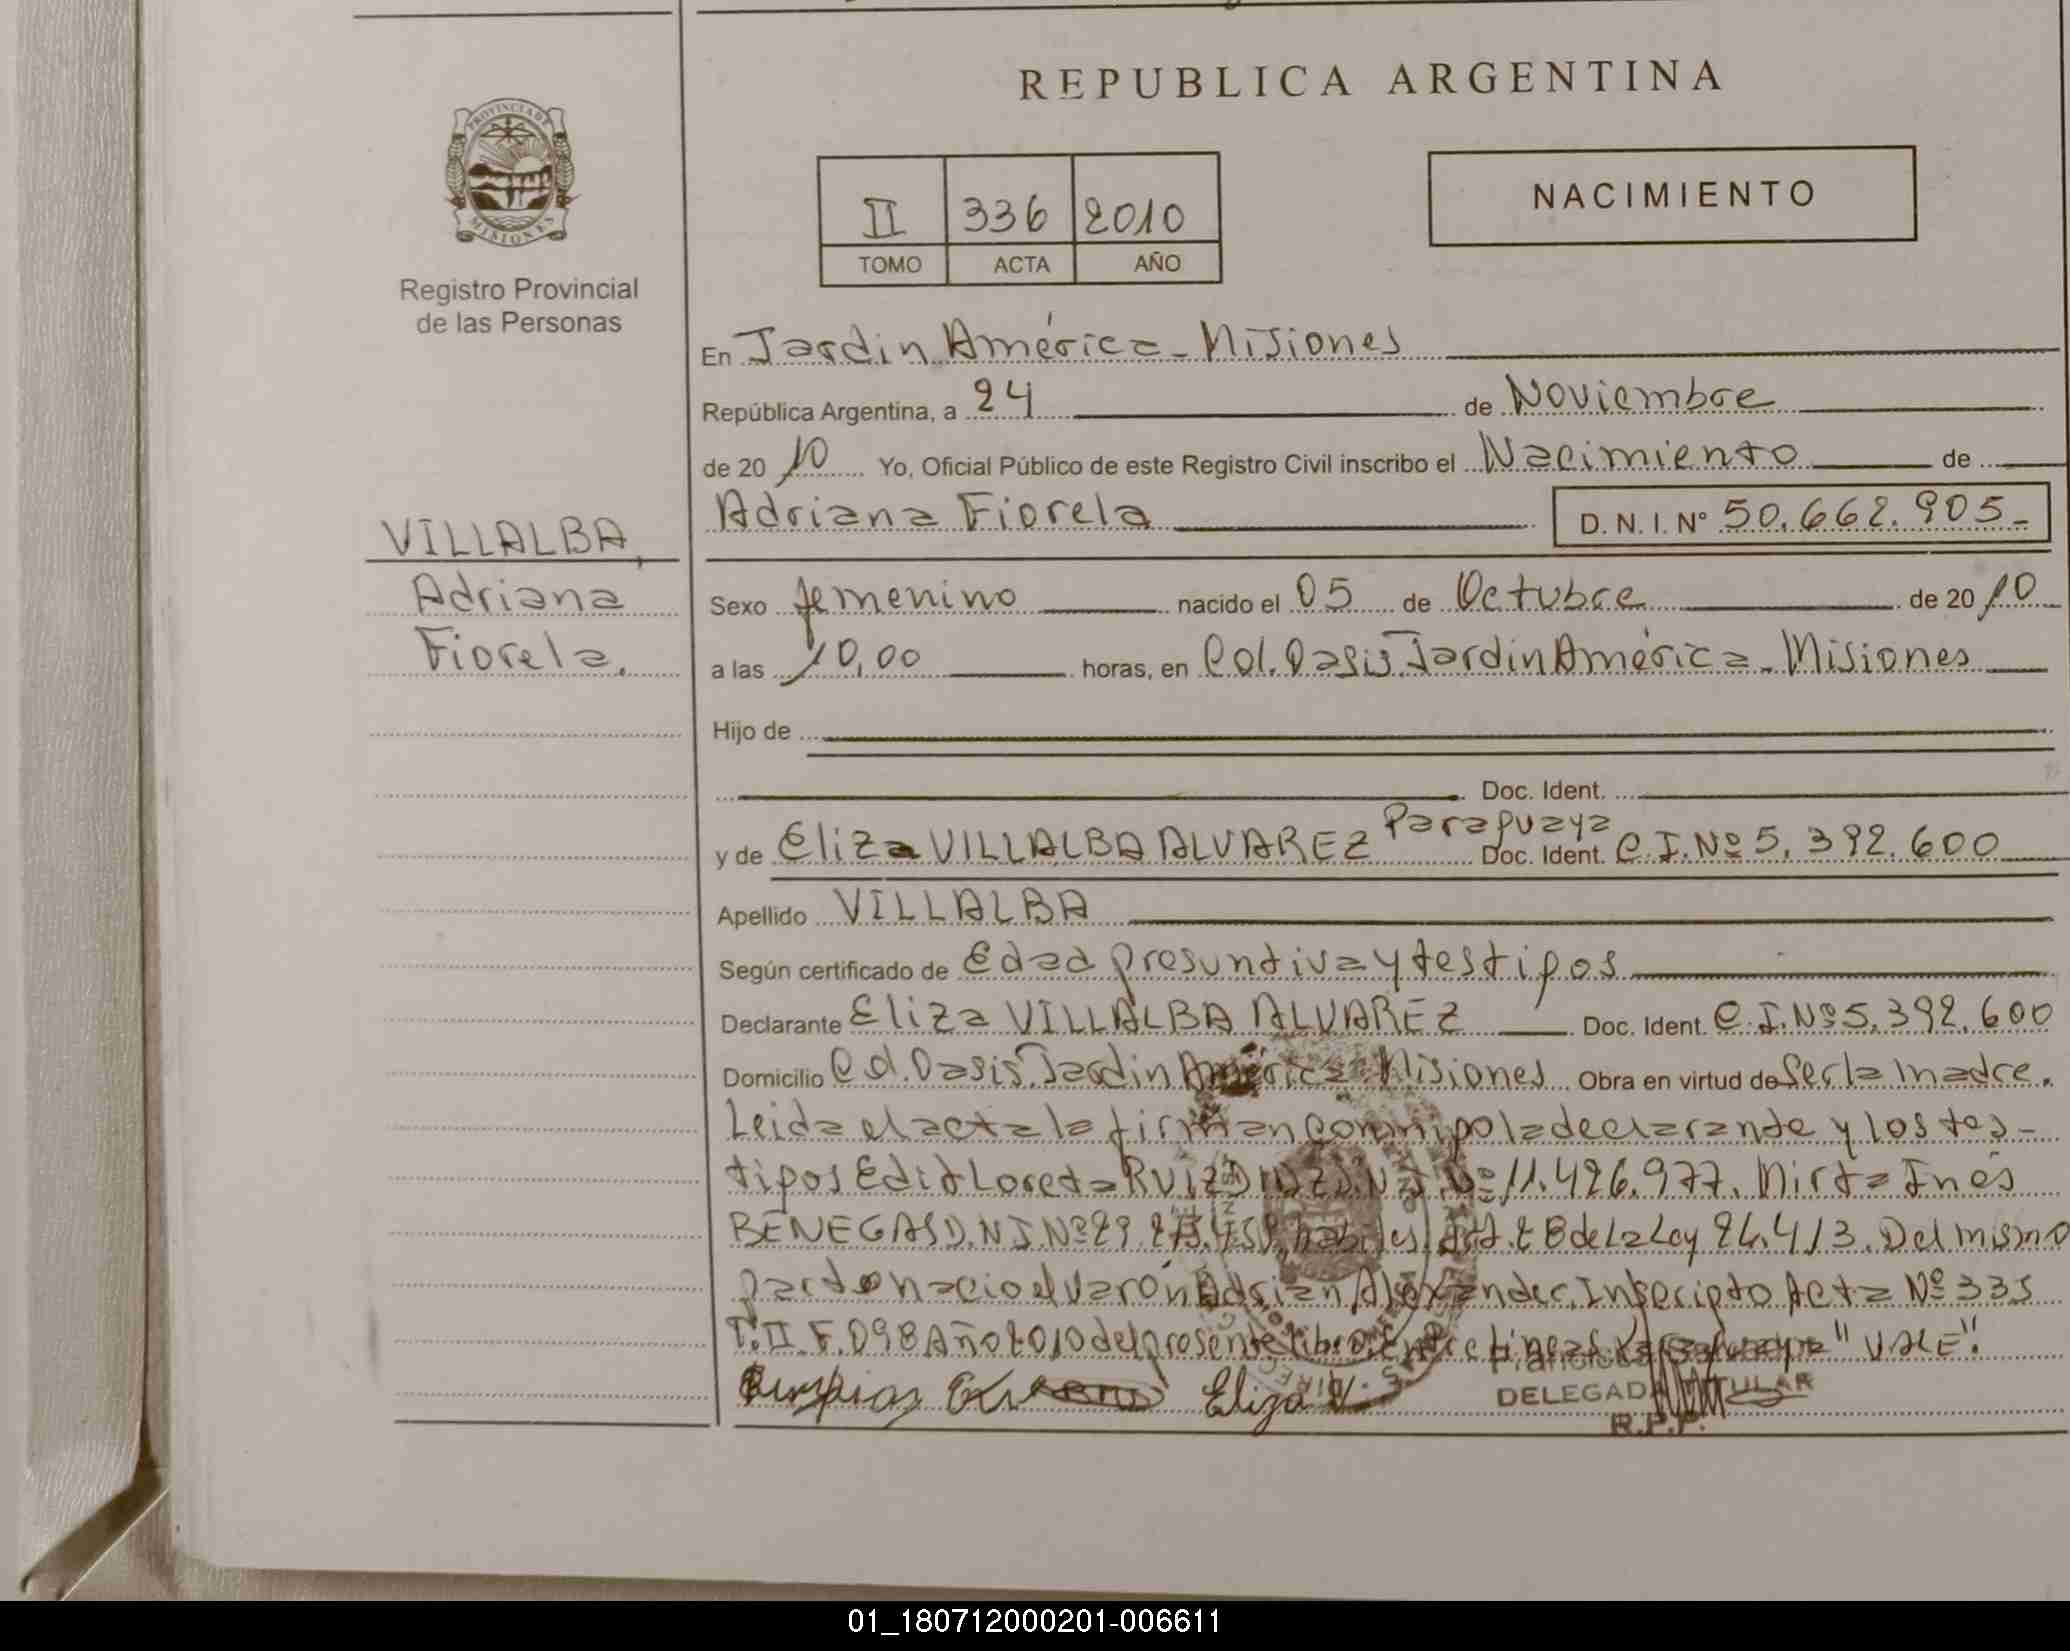 REPUBLICA ARGENTINA
PROVINCIA DE
MISIONES
Registro Provincial
de las Personas
II 336 2010
TOMO ACTA AÑO
NACIMIENTO
En Jardin América - Misiones
República Argentina, a 24 de Noviembre
de 20 10 Yo, Oficial Público de este Registro Civil inscribo el Nacimiento de
Adriana Fiorela D. N. I. Nº 50.662.905-
VILLALBA,
Adriana
Fiorela.
Sexo femenino nacido el 05 de Octubre de 20 10
a las 10,00 horas, en Col. Oasis Jardin América - Misiones
Hijo de
Doc. Ident.
Paraguaya
y de Eliza VILLALBA ALVAREZ Doc. Ident. C.I.Nº 5.392.600
Apellido VILLALBA
Según certificado de Edad presuntiva y testigos
Declarante Eliza VILLALBA ALVAREZ Doc. Ident. C.I.Nº 5.392.600
Domicilio Col. Oasis. Jardin América Misiones Obra en virtud de Ser la madre.
Leida el acta la firman conmigo la declarante y los tes-
tigos Edit Loreta RUIZ DIAZ D.N.I. Nº 11.426.977. Mirta Inés
BENEGAS D.N.I. Nº 29 habiles de la Ley 24.413. Del mismo
parto nacio el varón Adrian Alexander, Inscripto Acta Nº 335
T. II F. 098 Año 2010 del presente libro. Entre lineas "VALE".
Eliza V
DELEGADA TITULAR
R.P.P.
01_180712000201-006611